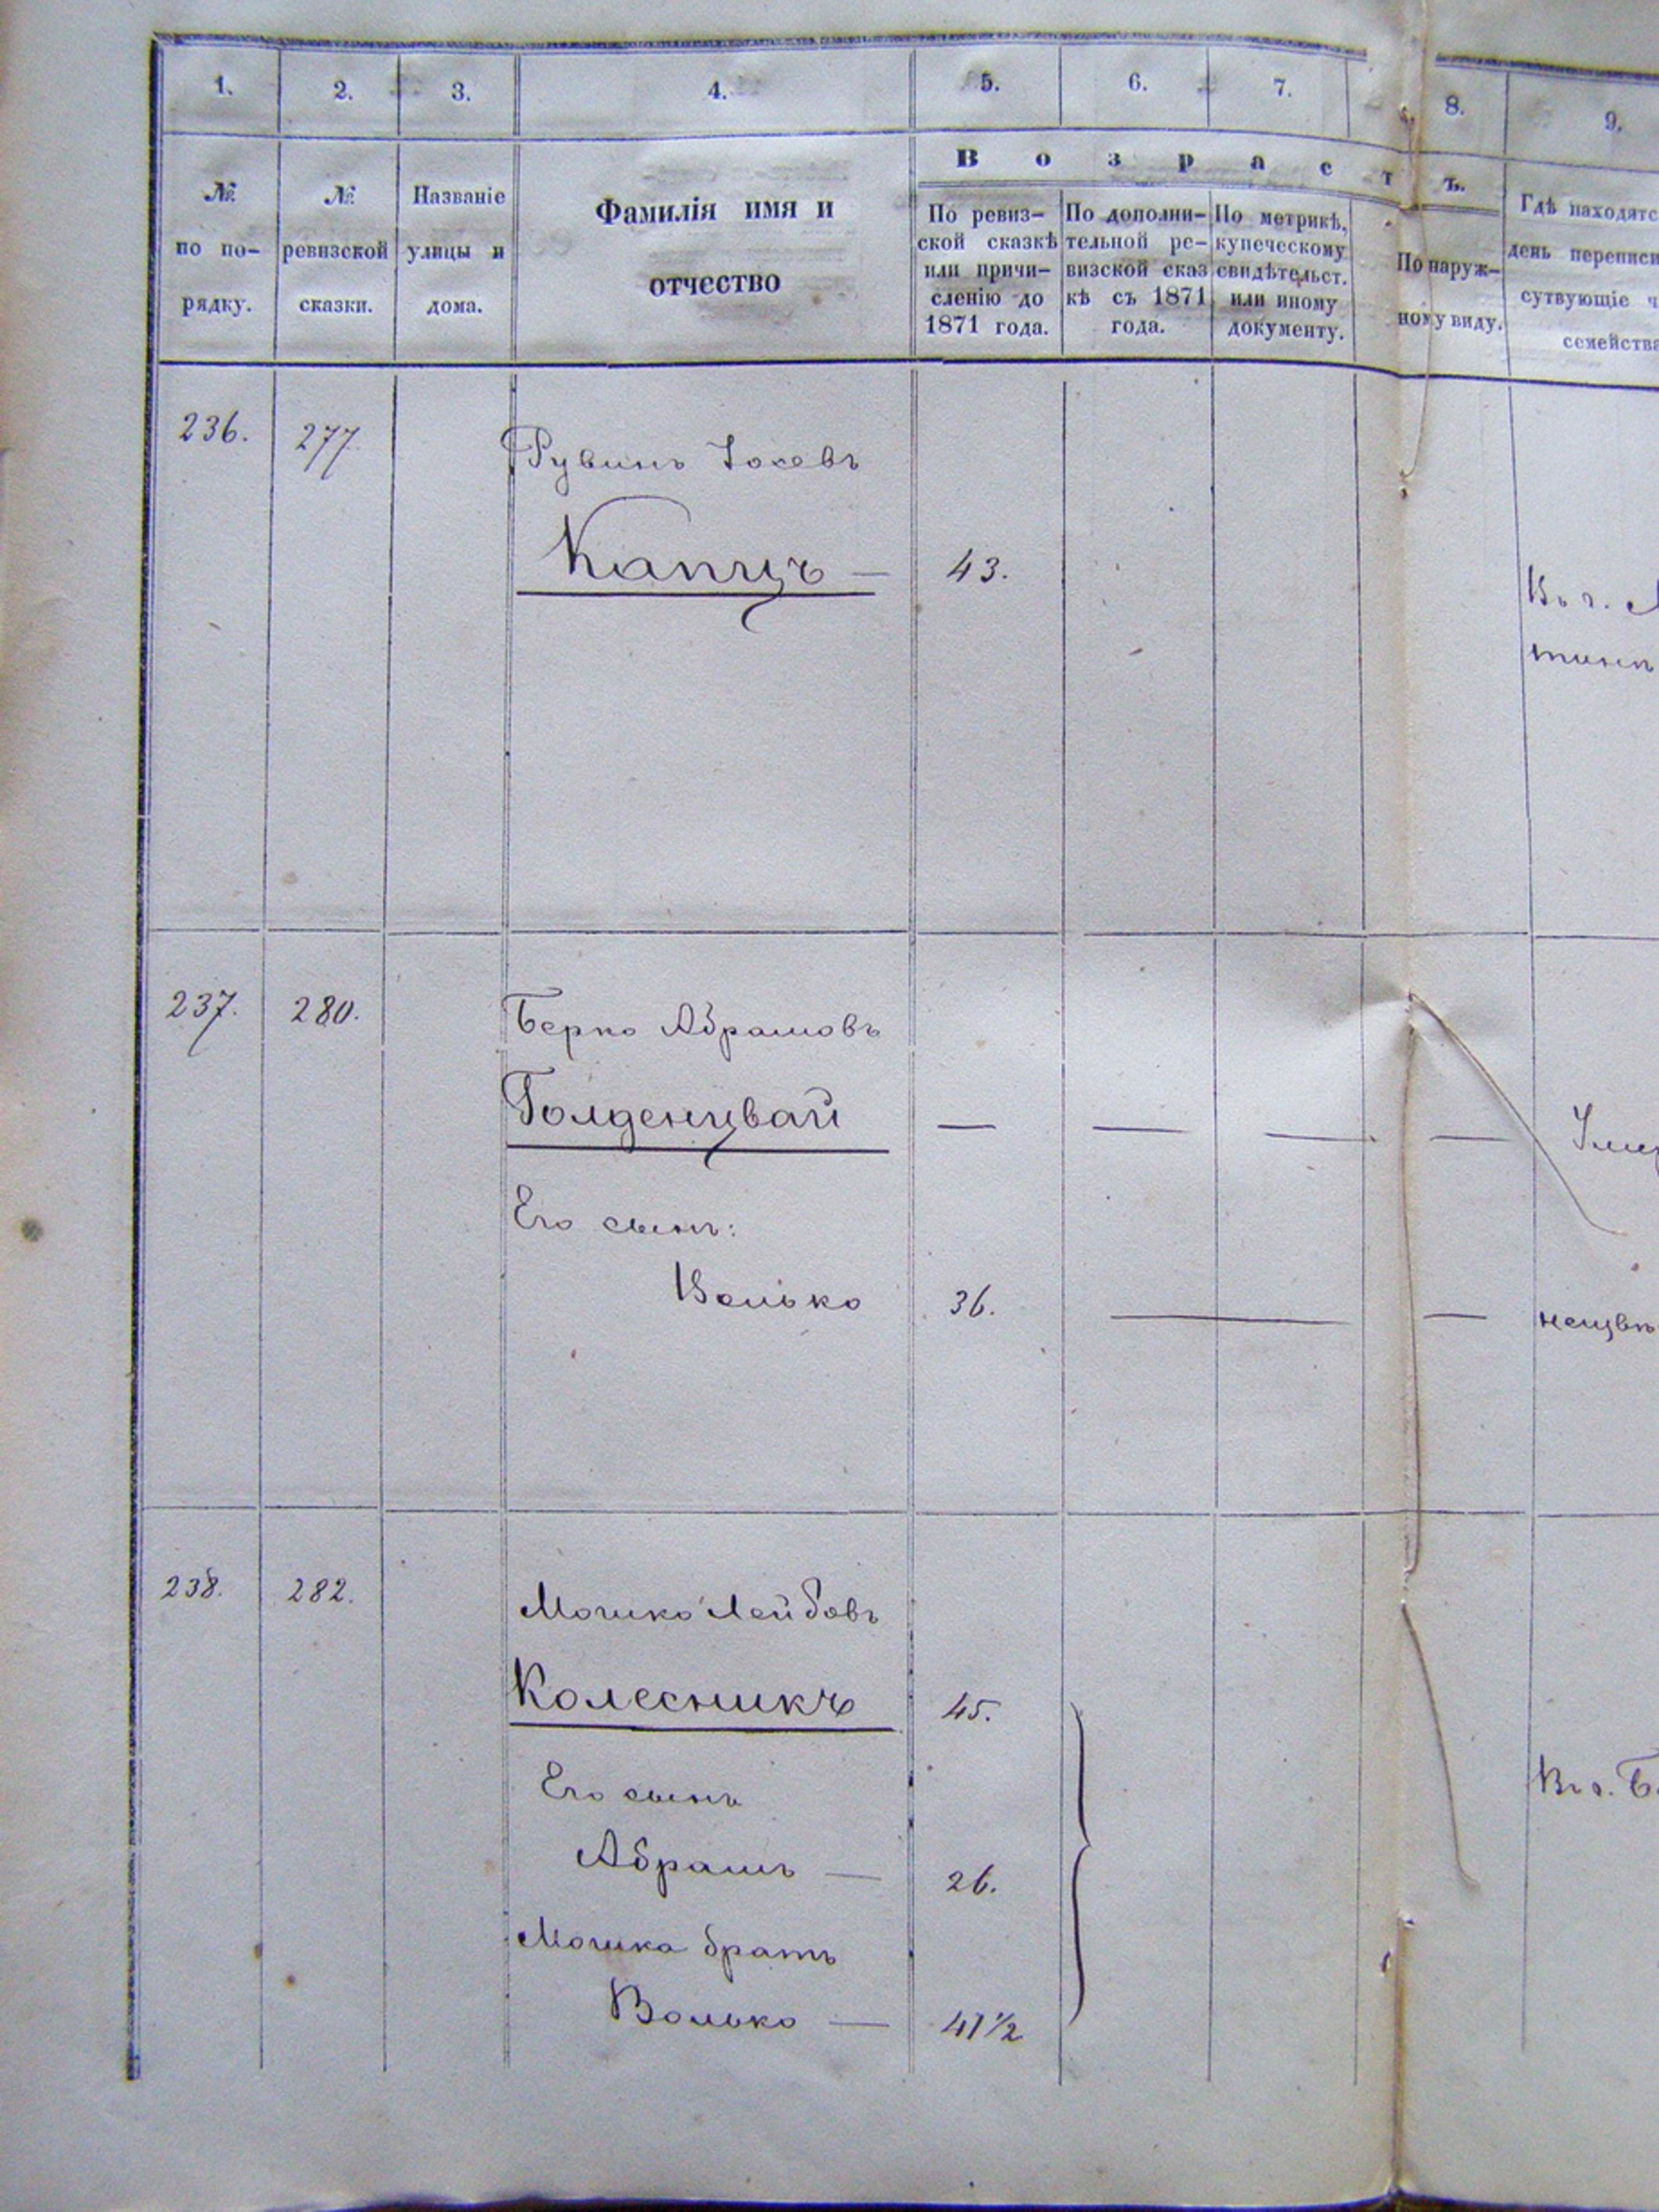 1. 2. 3. 4. 5. 6. 7. 8. 9.
Возрастъ.
№ по по-
рядку.
№ ревизской
сказки.
Названіе
улицы и
дома.
Фамилія имя и
отчество
По ревиз-
ской сказкѣ
или причи-
сленію до
1871 года.
По дополни-
тельной ре-
визской сказ
кѣ съ 1871
года.
По метрикѣ,
купеческому
свидѣтельст.
или иному
документу.
По наруж-
ному виду.
Гдѣ находятс
день переписи
сутвующіе ч
семейства
236. 277. Рувинъ Іосевъ
Капцъ — 43.
Въ г.
237. 280. Берко Абрамовъ
Голденцвай — — — —
Его сынъ:
Волько 36. — —
238. 282. Мошко Лейбовъ
Колесникъ 45.
Его сынъ
Абрамъ — 26.
Мошка братъ
Волько — 41½